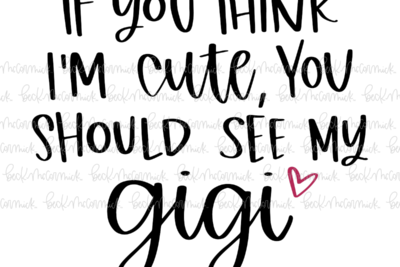 IF YOU THINK
I'M cute, YOU
SHOULD SEE MY
gigi